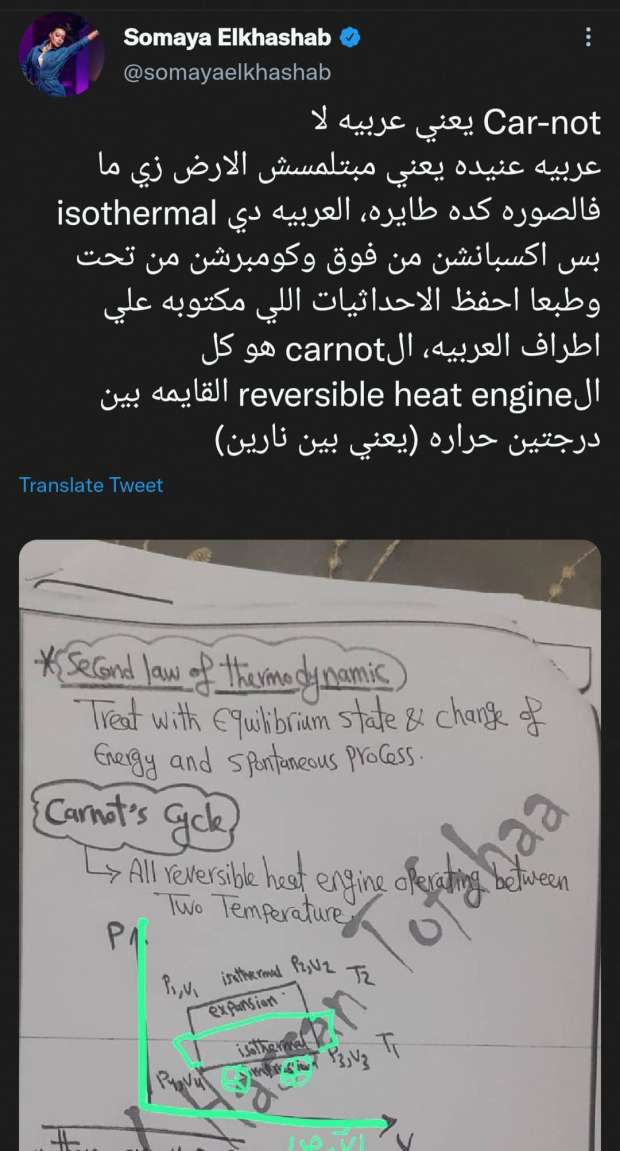 Somaya Elkhashab
@somayaelkhashab
Car-not يعني عربيه لا
عربيه عنيده يعني مبتلمسش الارض زي ما
فالصوره كده طايره، العربيه دي isothermal
بس اكسبانشن من فوق وكومبرشن من تحت
وطبعا احفظ الاحداثيات اللي مكتوبه علي
اطراف العربيه، الcarnot هو كل
الreversible heat engine القايمه بين
درجتين حراره (يعني بين نارين)
Translate Tweet
* Second law of thermodynamic
Treat with Equilibrium state & change of
Energy and spontaneous process.
Carnot's Cycle
All reversible heat engine operating between
Two Temperature
P
P1,V1 isothermal P2,V2 T2
expansion
isothermal T1
P4,V4 P3,V3
V
الأرض